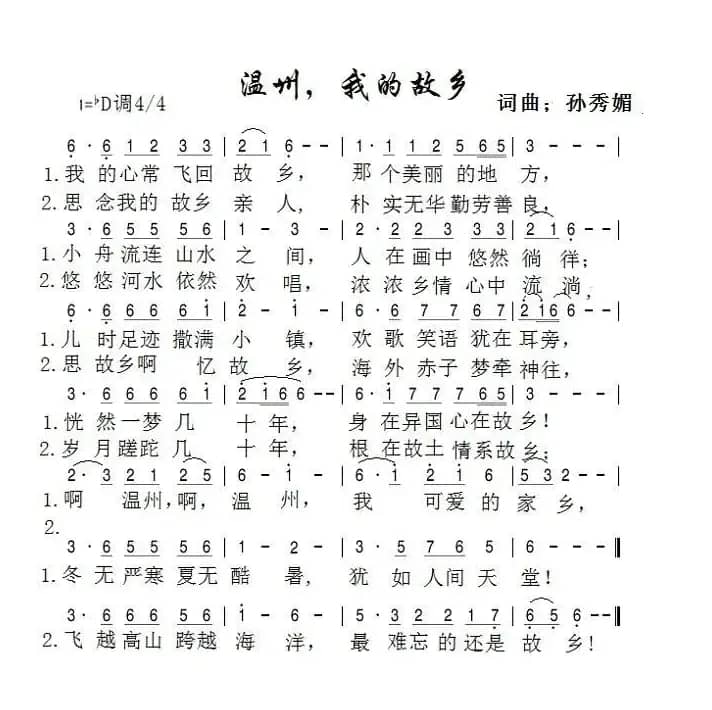 温州，我的故乡
1=♭D调4/4 词曲；孙秀媚
6·6 1 2 3 3 | 2 1 6 - - | 1·1 1 2 5 6 5 | 3 - - - |
1.我 的心常 飞回 故 乡， 那 个美丽 的地 方，
2.思 念我的 故乡 亲 人， 朴 实无华 勤劳善良，
3·6 5 5 5 6 | 1 - 3 - | 2·2 2 3 3 3 | 2 1 6 - - |
1.小 舟流连 山水 之 间， 人 在画中 悠然 徜 徉；
2.悠 悠河水 依然 欢 唱， 浓 浓乡情 心中 流 淌，
6·6 6 6 6 i | 2 - i - | 6·6 7 7 6 7 | 2 i 6 6 - |
1.儿 时足迹 撒满 小 镇， 欢 歌笑语 犹在 耳旁，
2.思 故乡啊 忆 故 乡， 海 外赤子 梦牵 神往，
3·6 6 6 6 i | 2 i 6 6 - - | 6·i 7 7 7 6 5 | 3 - - - |
1.恍 然一梦 几 十 年， 身 在异国 心在故乡！
2.岁 月蹉跎 几 十 年， 根 在故土 情系故乡；
2·3 2 1 2 5 | 6 - i - | 6·i 2 i 6 | 5 3 2 - - |
1.啊 温州，啊，温 州， 我 可爱 的 家 乡，
2.
3·6 5 5 5 6 | 1 - 2 - | 3·5 7 6 5 | 6 - - - ‖
1.冬 无严寒 夏无 酷 暑， 犹 如 人间 天 堂！
3·6 5 5 5 6 | i - 6 - | 5·3 2 2 1 7 | 6 5 6 - - ‖
2.飞 越高山 跨越 海 洋， 最 难忘的还是 故 乡！